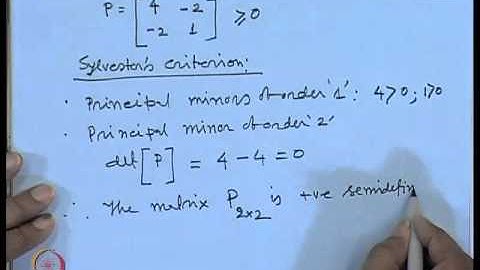 P = [ 4 -2
-2 1 ] ≥ 0
Sylvester's criterion:
· Principal minors of order '1': 4>0; 1>0
· Principal minor of order '2'
det [P] = 4 - 4 = 0
∴ The matrix P2×2 is +ve semidefin